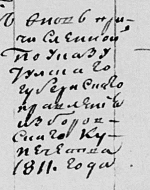 вновь при
численной
по указу
Тулшаго
губернскаго
правления
из боров-
скаго ку-
печества
1811. года